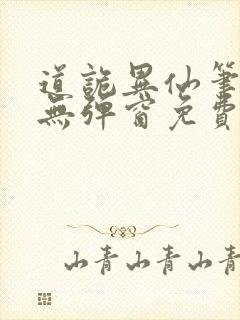 道詭異仙筆
無彈窗免費
山青山青山青